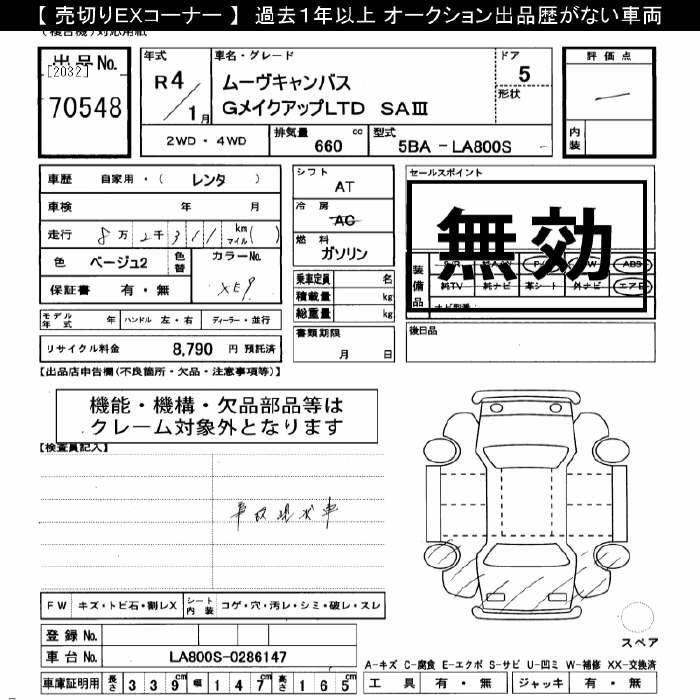 【 売切りEXコーナー 】 過去1年以上 オークション出品歴がない車両
(複合機)対応用紙
出品No.
[2032]
70548
年式
R4/1月
車名・グレード
ムーヴキャンバス
GメイクアップLTD SAⅢ
ドア
5
形状
評価点
一
内装
2WD・4WD
排気量
660 cc
型式
5BA－LA800S
車歴 自家用・( レンタ )
車検 年 月
走行 8万2千311 km マイル( )
色 ベージュ2
色替
カラーNo.
XE9
保証書 有・無
モデル年式 年
ハンドル 左・右
ディーラー・並行
リサイクル料金 8,790 円 預託済
シフト
AT
冷房
AC
燃料
ガソリン
乗車定員 名
積載量 kg
総重量 kg
書類期限
月 日
セールスポイント
無効
装備品
S/R
P/
W
ABS
純TV 純ナビ 革シート 外ナビ エアB
後日品
【出品店申告欄(不良箇所・欠品・注意事項等)】
機能・機構・欠品部品等は
クレーム対象外となります
【検査員記入】
事故現状車
FW キズ・トビ石・割レX
シート内装 コゲ・穴・汚レ・シミ・破レ・スレ
登録No.
車台No. LA800S-0286147
車庫証明用 長さ 339cm 幅 147cm 高さ 165cm
スペア
A-キズ C-腐食 E-エクボ S-サビ U-凹ミ W-補修 XX-交換済
工具 有・無 ジャッキ 有・無